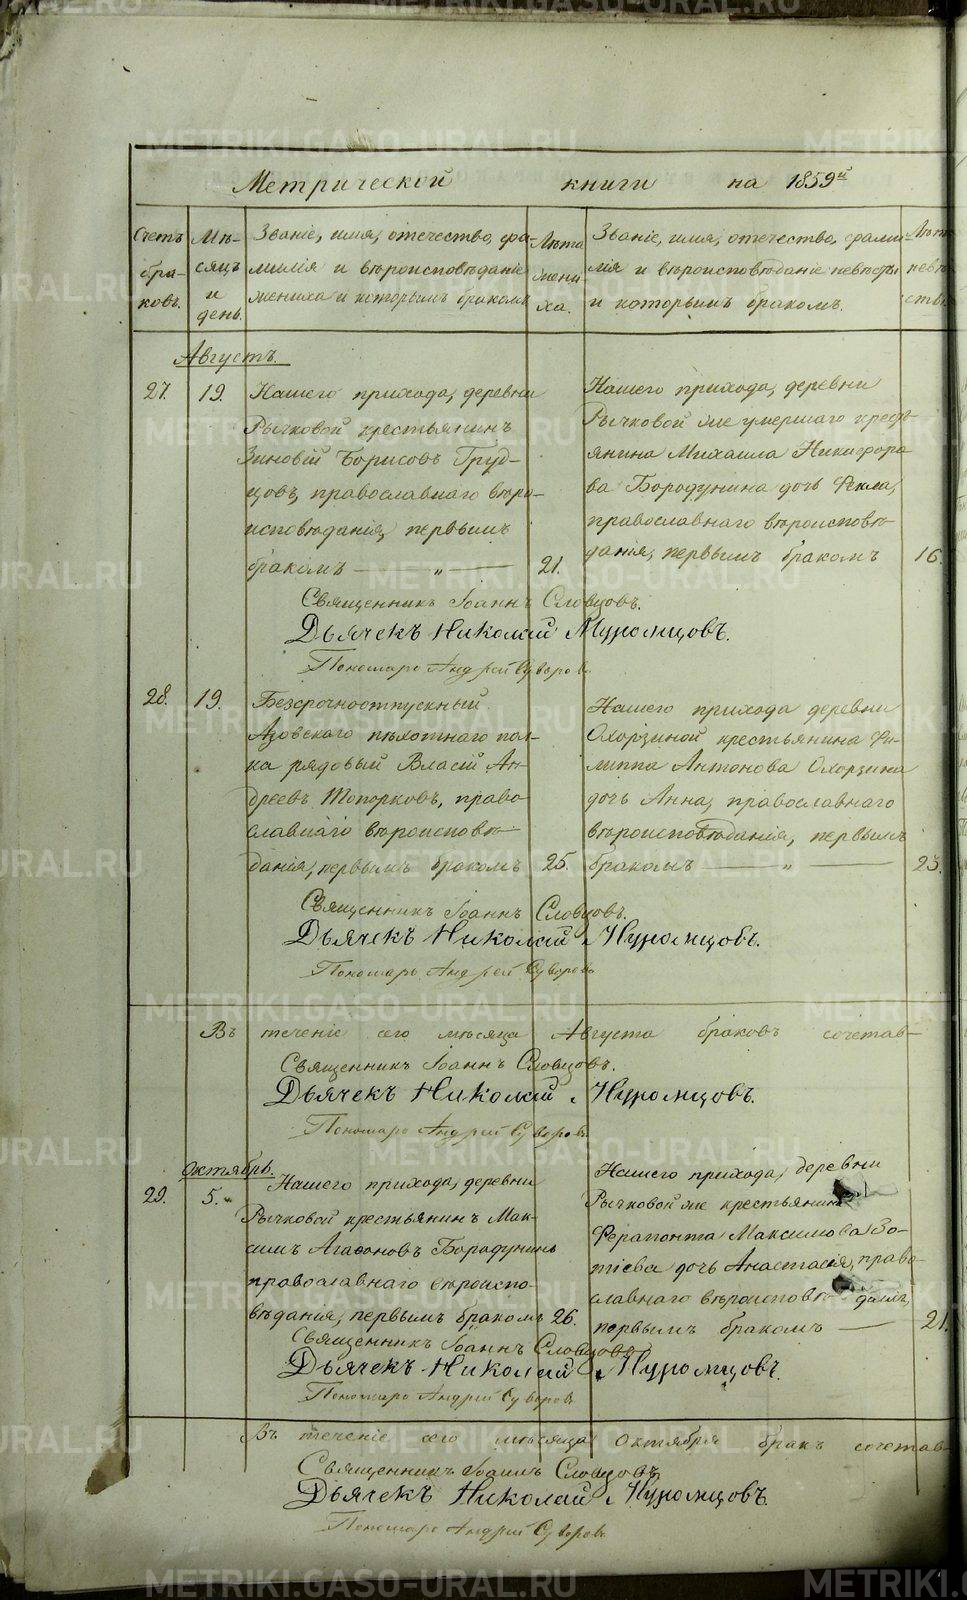 Метрической книги на 1859й
Счетъ
бра-
ковъ.
Мѣ-
сяцъ
и
день.
Званіе, имя, отечество, фа-
милія и вѣроисповѣданіе
жениха и которымъ бракомъ
Лѣта
жени-
ха.
Званіе, имя, отечество, фами-
лія и вѣроисповѣданіе невѣсты
и которымъ бракомъ.
Лѣт
невѣ
сты
Августъ.
27. 19. Нашего прихода, деревни
Рычковой крестьянинъ
Зиновій Борисовъ Груд-
цовъ, православнаго вѣро-
исповѣданія, первымъ
бракомъ — „ — 21.
Нашего прихода, деревни
Рычковой же умершаго крест-
янина Михаила Никифоро
ва Бородунина дочь Фекла,
православнаго вѣроисповѣ-
данія, первымъ бракомъ 16.
Священникъ Іоаннъ Словцовъ.
Дьячекъ Николай Муромцовъ.
Пономарь Андрей Суворовъ
28. 19. Безсрочноотпускный
Азовскаго пѣхотнаго пол-
ка рядовый Власій Ан-
дреевъ Топорковъ, право-
славнаго вѣроисповѣ-
данія, первымъ бракомъ 25.
Нашего прихода деревни
Охорзиной крестьянина Фи-
липпа Антонова Охорзина
дочь Анна, православнаго
вѣроисповѣданія, первымъ
бракомъ — „ — 23.
Священникъ Іоаннъ Словцовъ.
Дьячекъ Николай Муромцовъ.
Пономарь Андрей Суворовъ
Въ теченіе сего мѣсяца Августа браковъ сочетав-
Священникъ Іоаннъ Словцовъ.
Дьячекъ Николай Муромцовъ.
Пономарь Андрей Суворовъ
Октябрь.
29. 5. Нашего прихода, деревни
Рычковой крестьянинъ Мак-
симъ Агафоновъ Бородунинъ
православнаго вѣроиспо-
вѣданія, первымъ бракомъ 26.
Нашего прихода, деревни
Рычковой же крестьянина
Ферапонта Максимова Зо-
тіева дочь Анастасія, право-
славнаго вѣроисповѣданія,
первымъ бракомъ — 21.
Священникъ Іоаннъ Словцовъ
Дьячекъ Николай Муромцовъ.
Пономарь Андрей Суворовъ
Въ теченіе сего мѣсяца Октября бракъ сочетав-
Священникъ Іоаннъ Словцовъ
Дьячекъ Николай Муромцовъ
Пономарь Андрей Суворовъ
METRIKI.GASO-URAL.RU